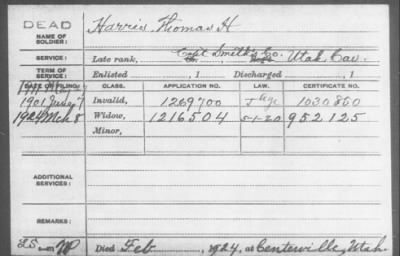 DEAD
NAME OF SOLDIER:
Harris Thomas H
SERVICE:
Late rank, Capt Smith's Co. Utah Cav.
TERM OF SERVICE:
Enlisted , 1 Discharged , 1
DATE OF FILING: CLASS. APPLICATION NO. LAW. CERTIFICATE NO.
1901 7 Invalid, 1269700 Age 1030850
1924 Mch 8 Widow, 1216504 5-1-20 952125
Minor,
ADDITIONAL SERVICES:
REMARKS:
Died Feb , 1924, at Centerville, Utah.